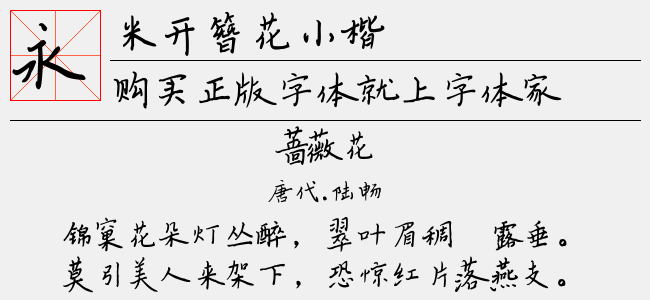 永
米开簪花小楷
购买正版字体就上字体家
蔷薇花
唐代.陆畅
锦窠花朵灯丛醉，翠叶眉稠 露垂。
莫引美人来架下，恐惊红片落燕支。